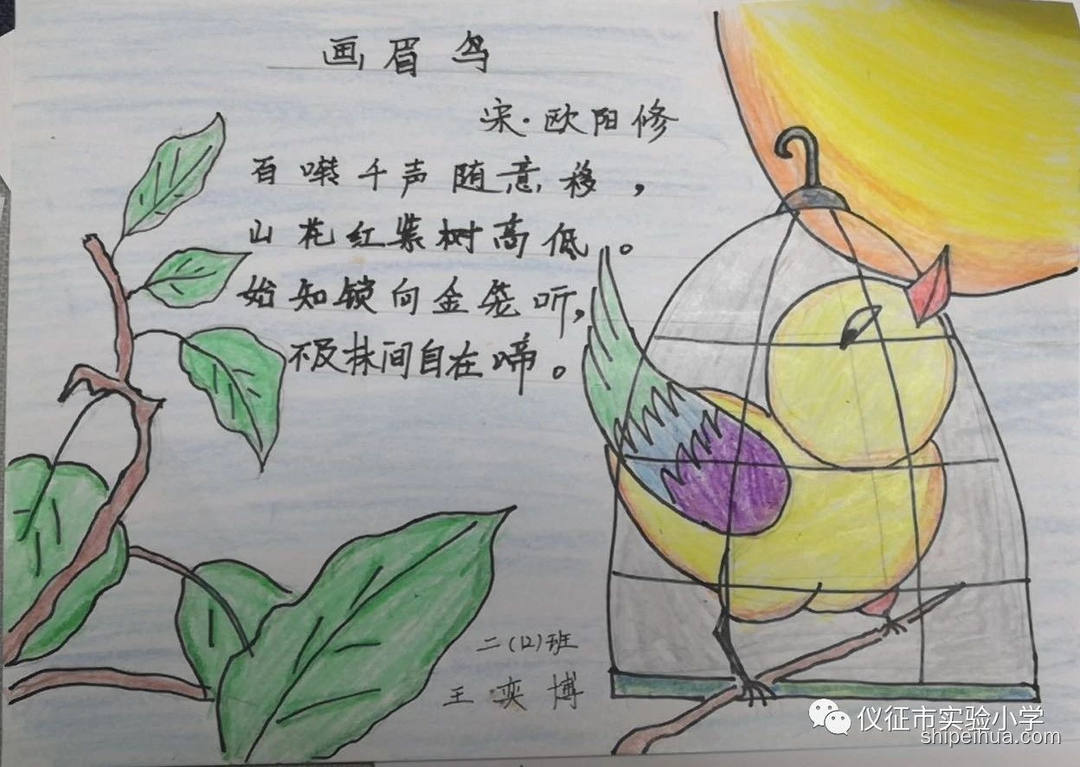 画眉鸟
宋·欧阳修
百啭千声随意移，
山花红紫树高低。
始知锁向金笼听，
不及林间自在啼。
二(12)班
王奕博
仪征市实验小学
shipeihua.com